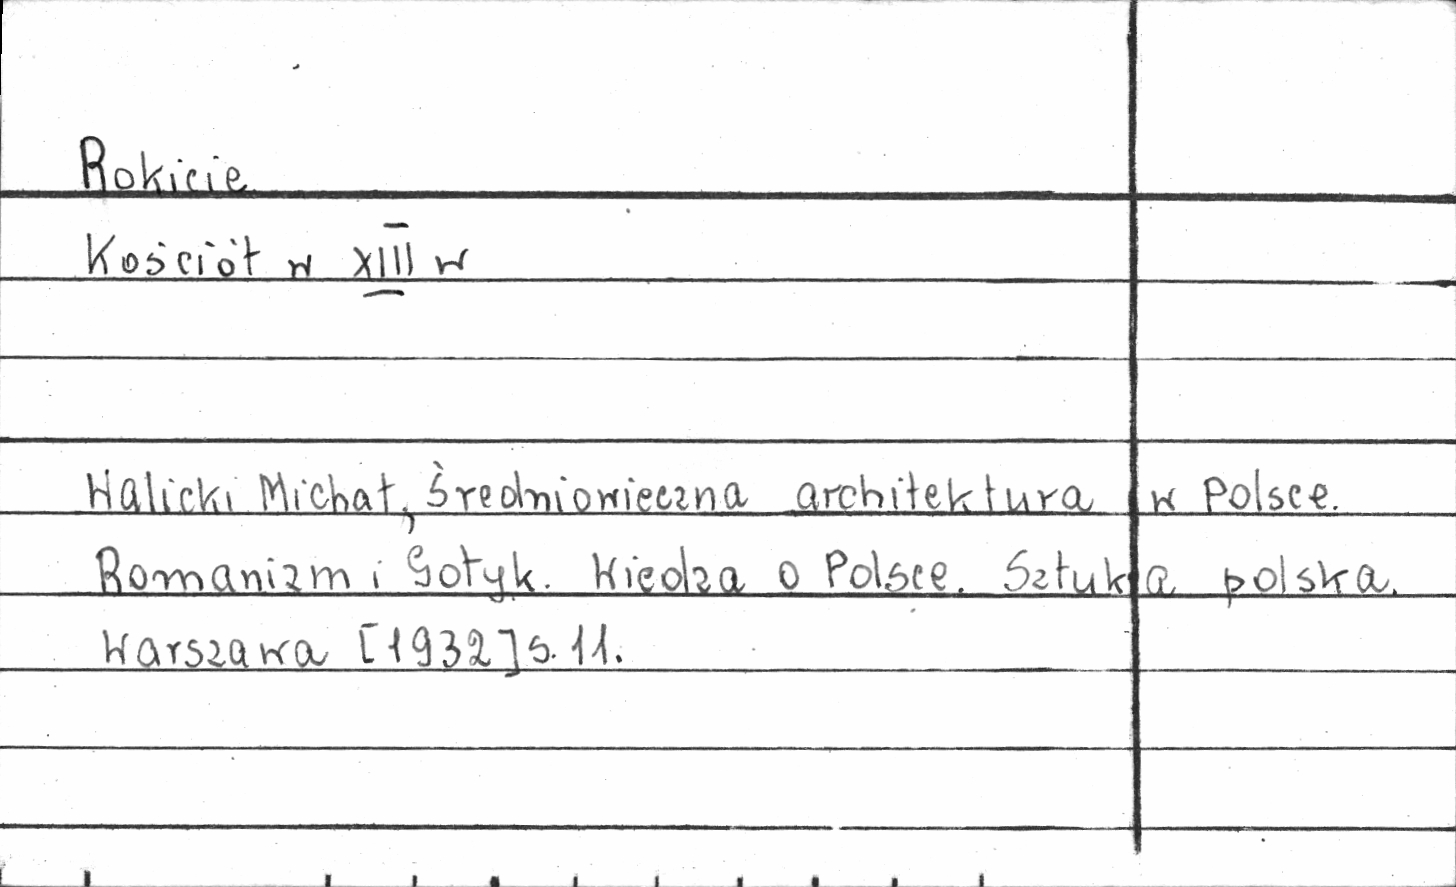 Rokicie
Kościół w XIII w
Walicki Michał, Średniowieczna architektura w Polsce.
Romanizm i Gotyk. Wiedza o Polsce. Sztuka polska.
Warszawa [1932] s. 11.